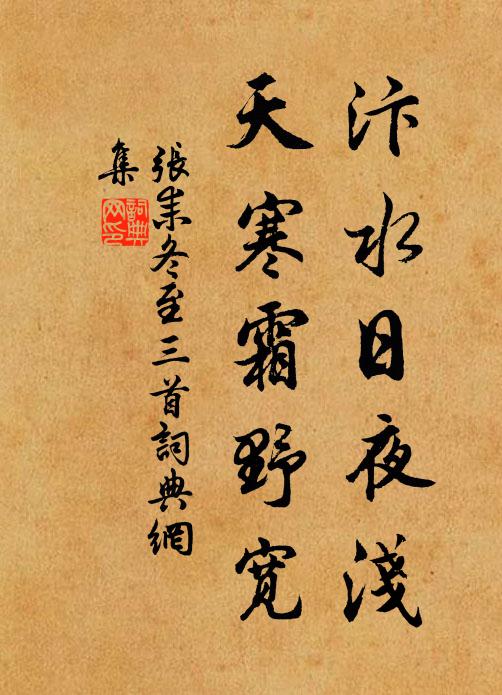 汴水日夜淺
天寒霜野寬
張耒冬至三首詞典網
集
詞典
网印